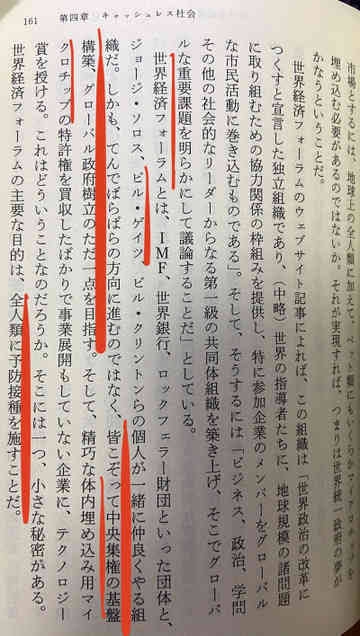 161　第四章　キャッシュレス社会
市場とするには、地球上の全人類に加えて、ペット類にもいくらかマイクロチップを
埋め込む必要があるのではないか。それが実現すれば、つまりは世界統一政府の夢が
かなうということだ。
世界経済フォーラムのウェブサイト記事によれば、この組織は「世界政治の改革に
つくすと宣言した独立組織であり、（中略）世界の指導者たちに、地球規模の諸問題
に取り組むための協力関係の枠組みを提供し、特に参加企業のメンバーをグローバル
な市民活動に巻き込むものである」。そして、そうするには「ビジネス、政治、学問
その他の社会的なリーダーからなる第一級の共同体組織を築き上げ、そこでグローバ
ルな重要課題を明らかにして議論することだ」としている。
世界経済フォーラムとは、IMF、世界銀行、ロックフェラー財団といった団体と、
ジョージ・ソロス、ビル・ゲイツ、ビル・クリントンらの個人が一緒に仲良くやる組
織だ。しかも、てんでばらばらの方向に進むのではなく、皆こぞって中央集権の基盤
構築、グローバル政府樹立のただ一点を目指す。そして、精巧な体内埋め込み用マイ
クロチップの特許権を買収したばかりで事業展開もしていない企業に、テクノロジー
賞を授ける。これはどういうことなのだろうか。そこには一つ、小さな秘密がある。
世界経済フォーラムの主要な目的は、全人類に予防接種を施すことだ。